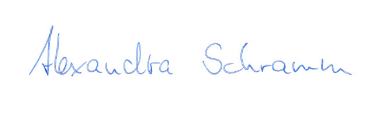 Alexandra Schramm